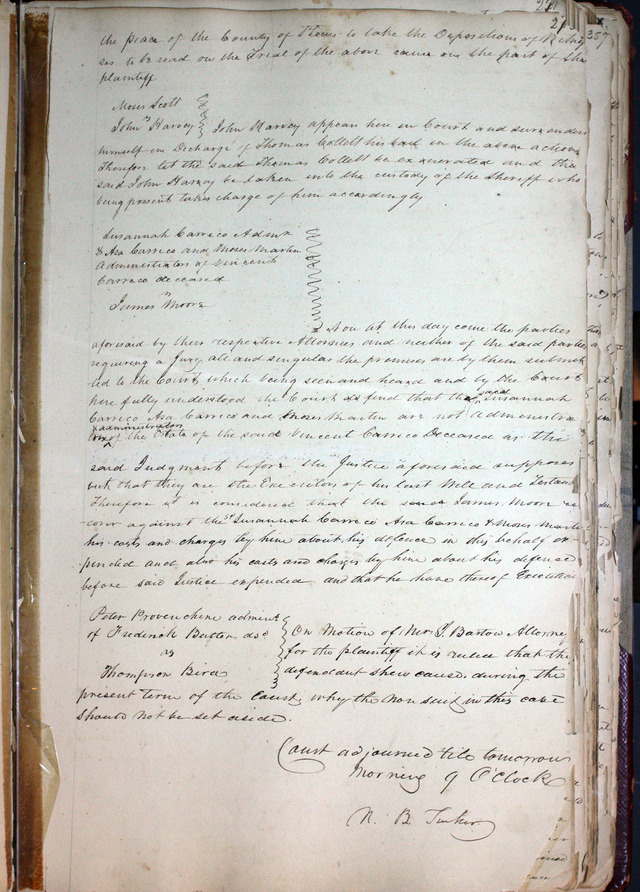 271
the peace of the County of to take the Depositions of Witnes
ses to be read on the Trial of the above cause on the part of the
plaintiff
Moses Scott
vs
John Harvey
John Harvey appears here in Court and surrenders
himself in Discharge of Thomas Collett his bail in the above action
Therefore let the said Thomas Collett be exonerated and the
said John Harvey be taken into the custody of the Sheriff who
being present takes charge of him accordingly
Susannah Carrico Admx
& Asa Carrico and Moses Martin
Administrators of Vincent
Carrico deceased
vs
James Moore
Now at this day come the parties
aforesaid by their respective Attornies and neither of the said parties
requiring a Jury all and singular the premises are by them submit
ted to the Court, which being seen and heard and by the Court
here fully understood the Court do find that the said Susannah
Carrico Asa Carrico and Moses Martin are not Administra
administrators
of the Estate of the said Vincent Carrico Deceased as the
said Judgment before the Justice aforesaid supposes
but that they are the Executors of his last Will and Testament
Therefore it is considered that the said James Moore re
cover against the sd Susannah Carrico Asa Carrico & Moses Martin
his costs and charges by him about his defence in this behalf ex
pended and also his costs and charges by him about his defence
before said Justice expended and that he have thereof Execution
Peter Provenchere adminr
of Frederick Bates decd
vs
Thompson Bird
On Motion of Mr J. Bartow Attorney
for the plaintiff it is ruled that the
defendant shew cause during the
present term of the Court, why the Non suit in this case
should not be set aside.
Court adjourned till tomorrow
Morning 9 O'Clock
N. B. Tucker